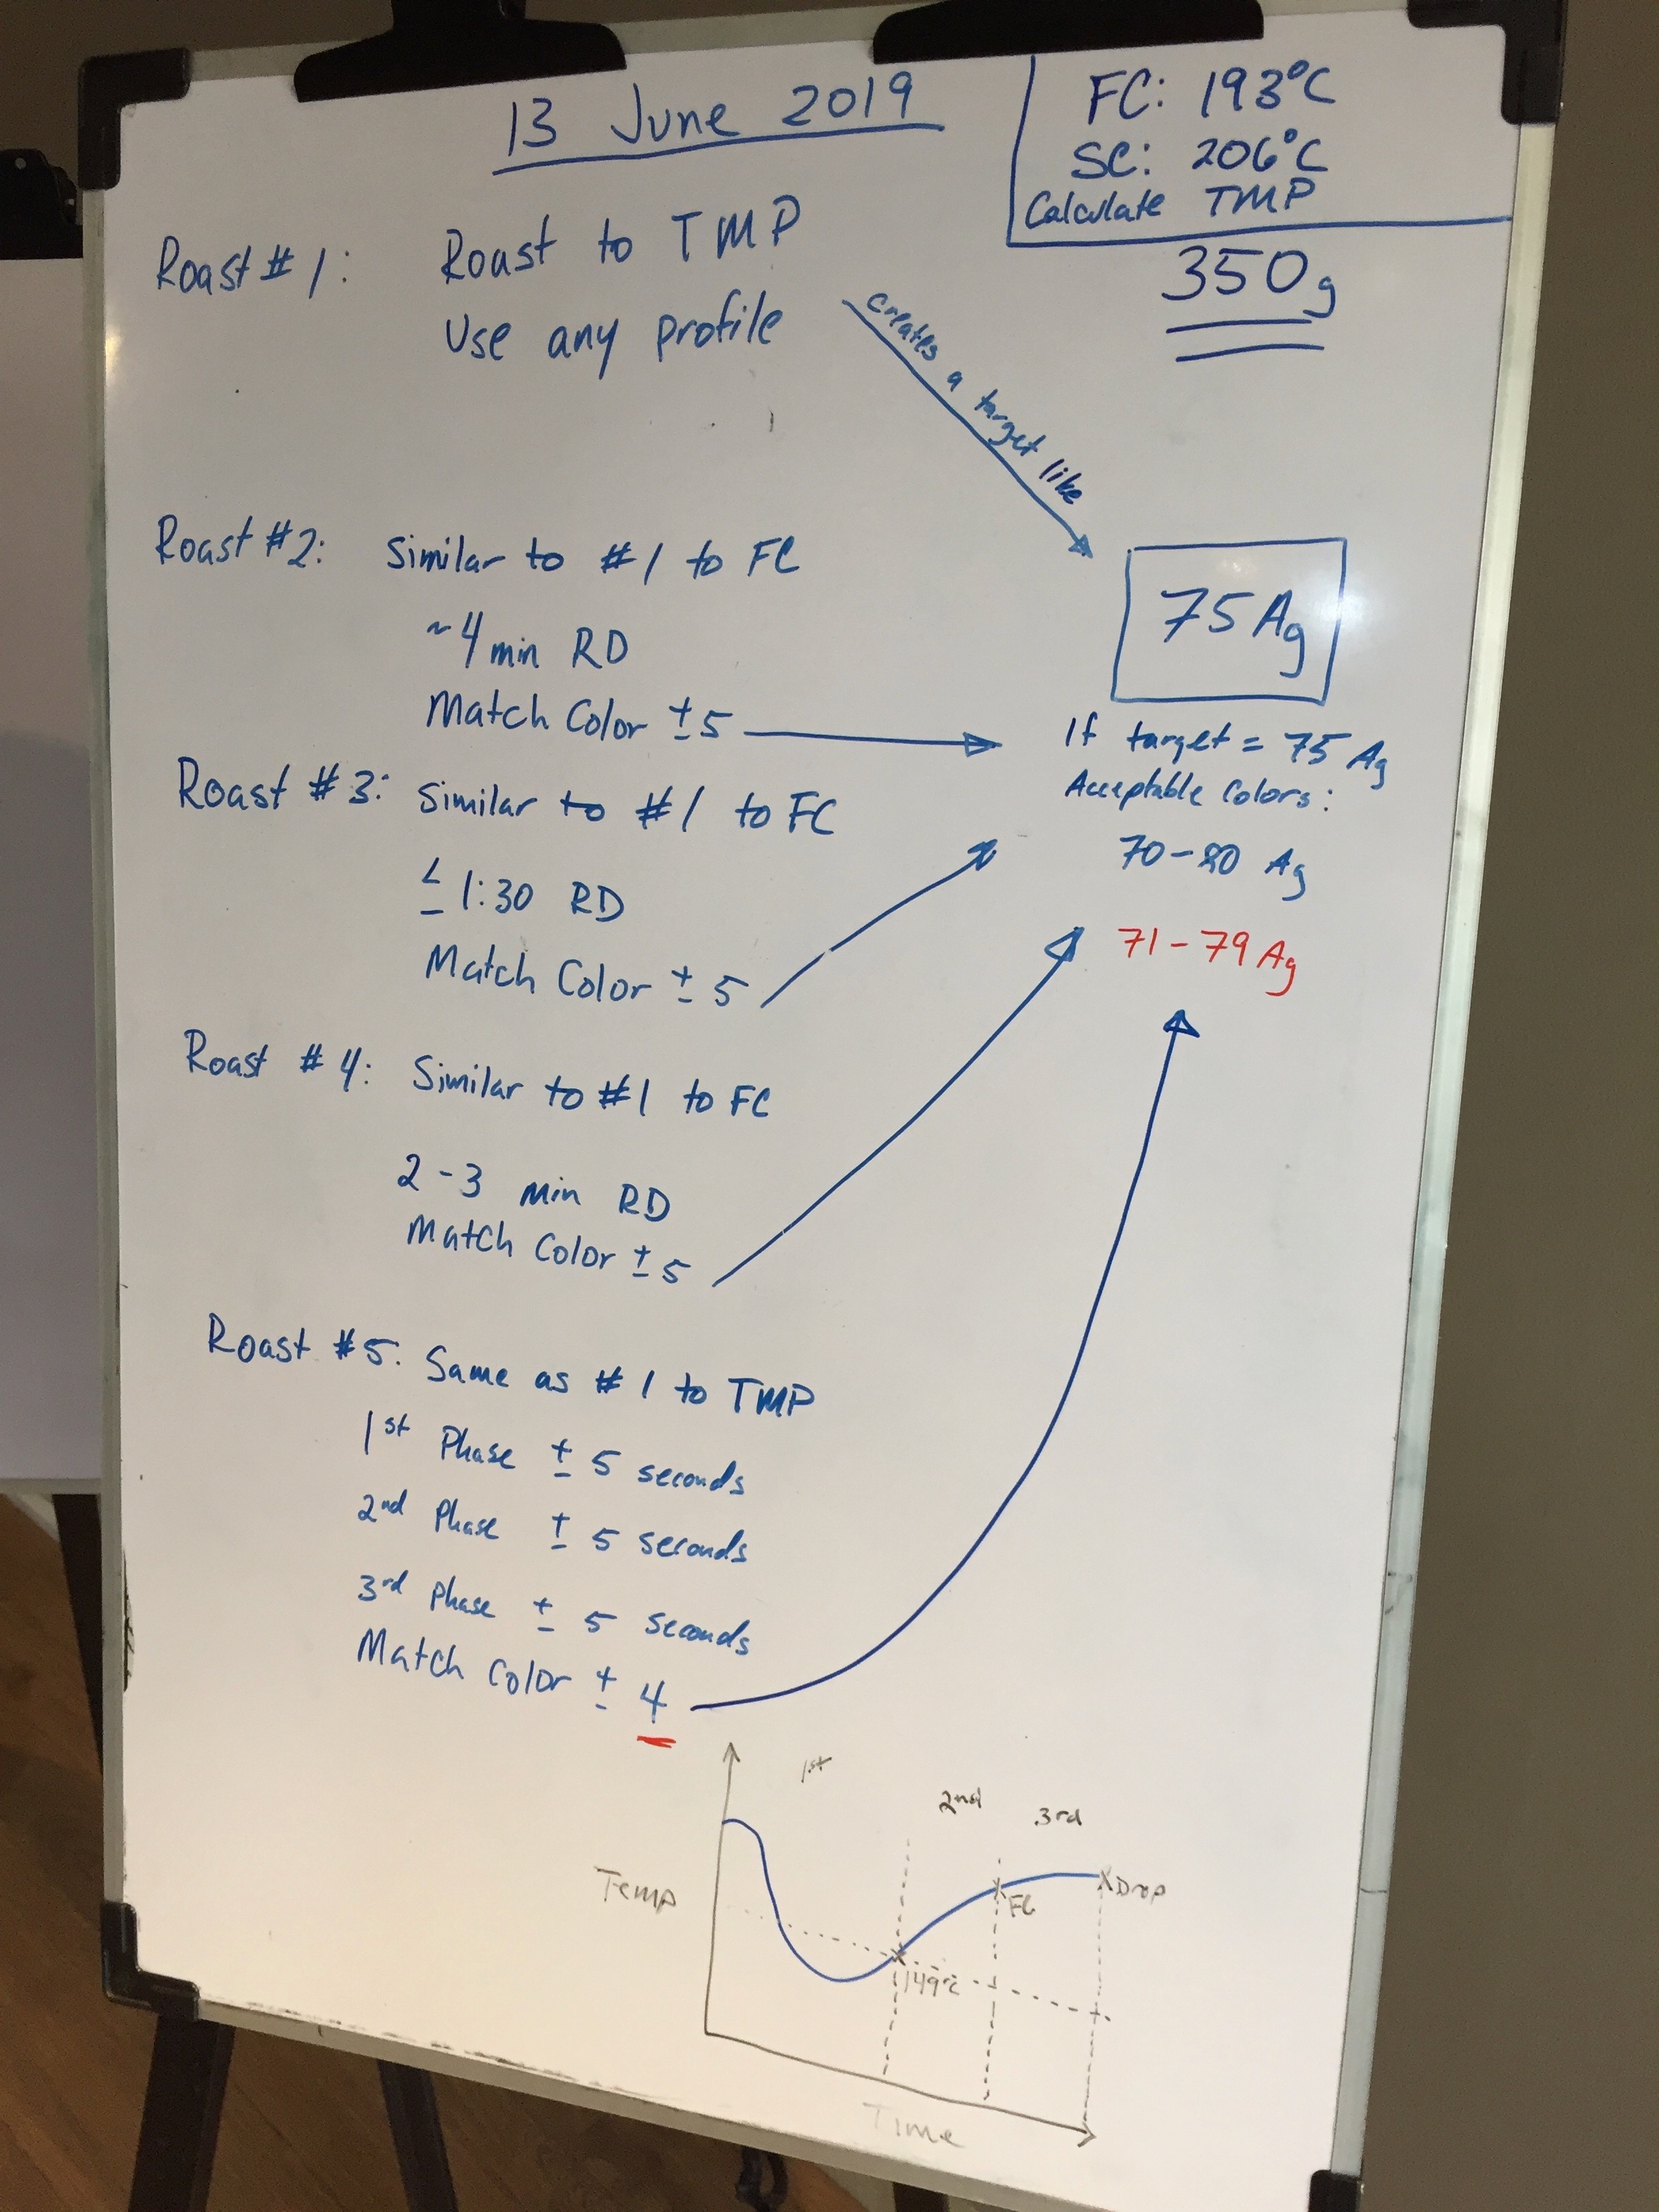 13 June 2019
FC: 193°C
SC: 206°C
Calculate TMP
350g
Roast #1: Roast to TMP
Use any profile
creates a target like
75 Ag
Roast #2: Similar to #1 to FC
~4 min RD
Match Color ±5
If target = 75 Ag
Acceptable Colors:
70-80 Ag
71-79 Ag
Roast #3: Similar to #1 to FC
≤ 1:30 RD
Match Color ±5
Roast #4: Similar to #1 to FC
2-3 min RD
Match Color ±5
Roast #5: Same as #1 to TMP
1st Phase ± 5 seconds
2nd Phase ± 5 seconds
3rd Phase ± 5 seconds
Match Color ± 4
1st
2nd
3rd
Temp
FC
Drop
149°C
Time